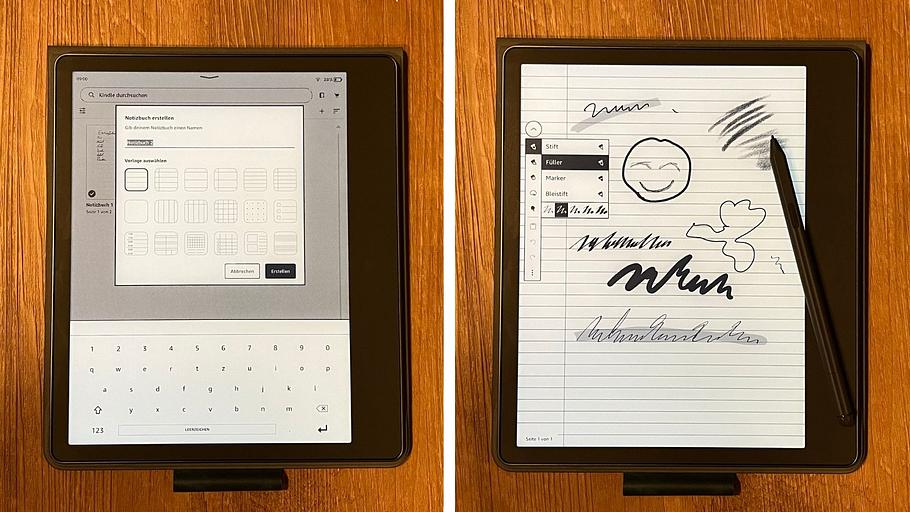 09:00
28%
Kindle durchsuchen
Notizbuch 1
Seite 1 von 2
Notizbuch erstellen
Gib deinem Notizbuch einen Namen
Vorlage auswählen
Abbrechen
Erstellen
1 2 3 4 5 6 7 8 9 0
q w e r t z u i o p
a s d f g h j k l
y x c v b n m
123
LEERZEICHEN
Stift
Füller
Marker
Bleistift
Seite 1 von 1